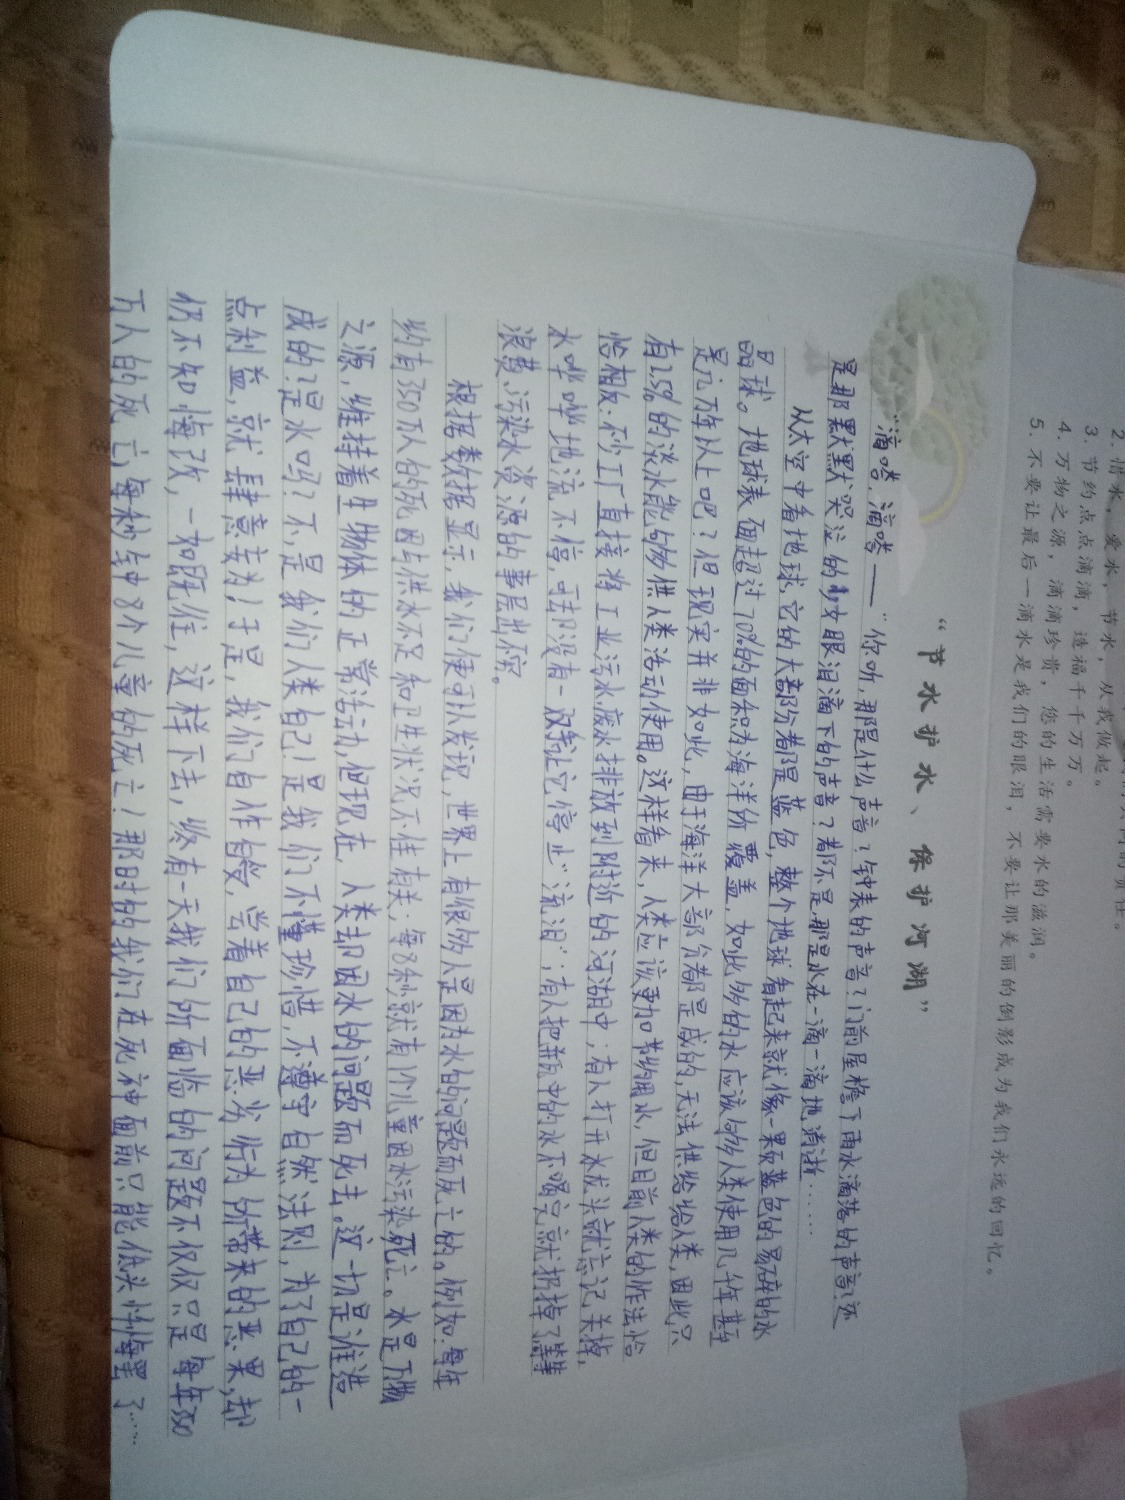 2. 惜水，爱水，节水，从我做起。
3. 节约点点滴滴，造福千千万万。
4. 万物之源，滴滴珍贵，您的生活需要水的滋润。
5. 不要让最后一滴水是我们的眼泪，不要让那美丽的倒影成为我们永远的回忆。
“节水护水、保护河湖”
“滴嗒，滴嗒——”你听，那是什么声音？钟表的声音？门前屋檐下雨水滴落的声音？还
是那默默哭泣的女眼泪滴下的声音？都不是，那是水在一滴一滴地消逝……
从太空中看地球，它的大部份都是蓝色，整个地球看起来就像一颗蓝色的易碎的水
晶球。地球表面超过70%的面积为海洋所覆盖，如此多的水应该够人类使用几年甚至
是几万年以上吧？但现实并非如此，由于海洋大部分都是咸的，无法供给给人类，因此只
有2.5%的淡水能够供人类活动使用。这样看来，人类应该更加节约用水，但目前人类的作法恰
恰相反。不少工厂直接将工业污水、废水排放到附近的河湖中；有人打开水龙头就忘记关掉，
水哗哗地流不停，可却没有一双手让它停止“流泪”；有人把瓶中的水不喝完就扔掉了，等等
浪费、污染水资源的事层出不穷。
根据数据显示，我们便可以发现，世界上有很多人是因为水的问题而死亡的。例如：每年
约有350万人的死因与供水不足和卫生状况不佳有关；每8秒就有1个儿童因水污染死亡。水是万物
之源，维持着生物体的正常活动，但现在，人类却因水的问题而死去。这一切是谁造
成的？是水吗？不，是我们人类自己！是我们不懂珍惜，不遵守自然法则，为了自己的一
点利益，就肆意妄为！于是，我们自作自受，尝着自己的恶劣行为所带来的恶果，却
仍不知悔改，一如既往，这样下去，终有一天我们所面临的问题不仅仅只是每年350
万人的死亡，每秒钟8个儿童的死亡！那时的我们在死神面前只能低头忏悔罢了……